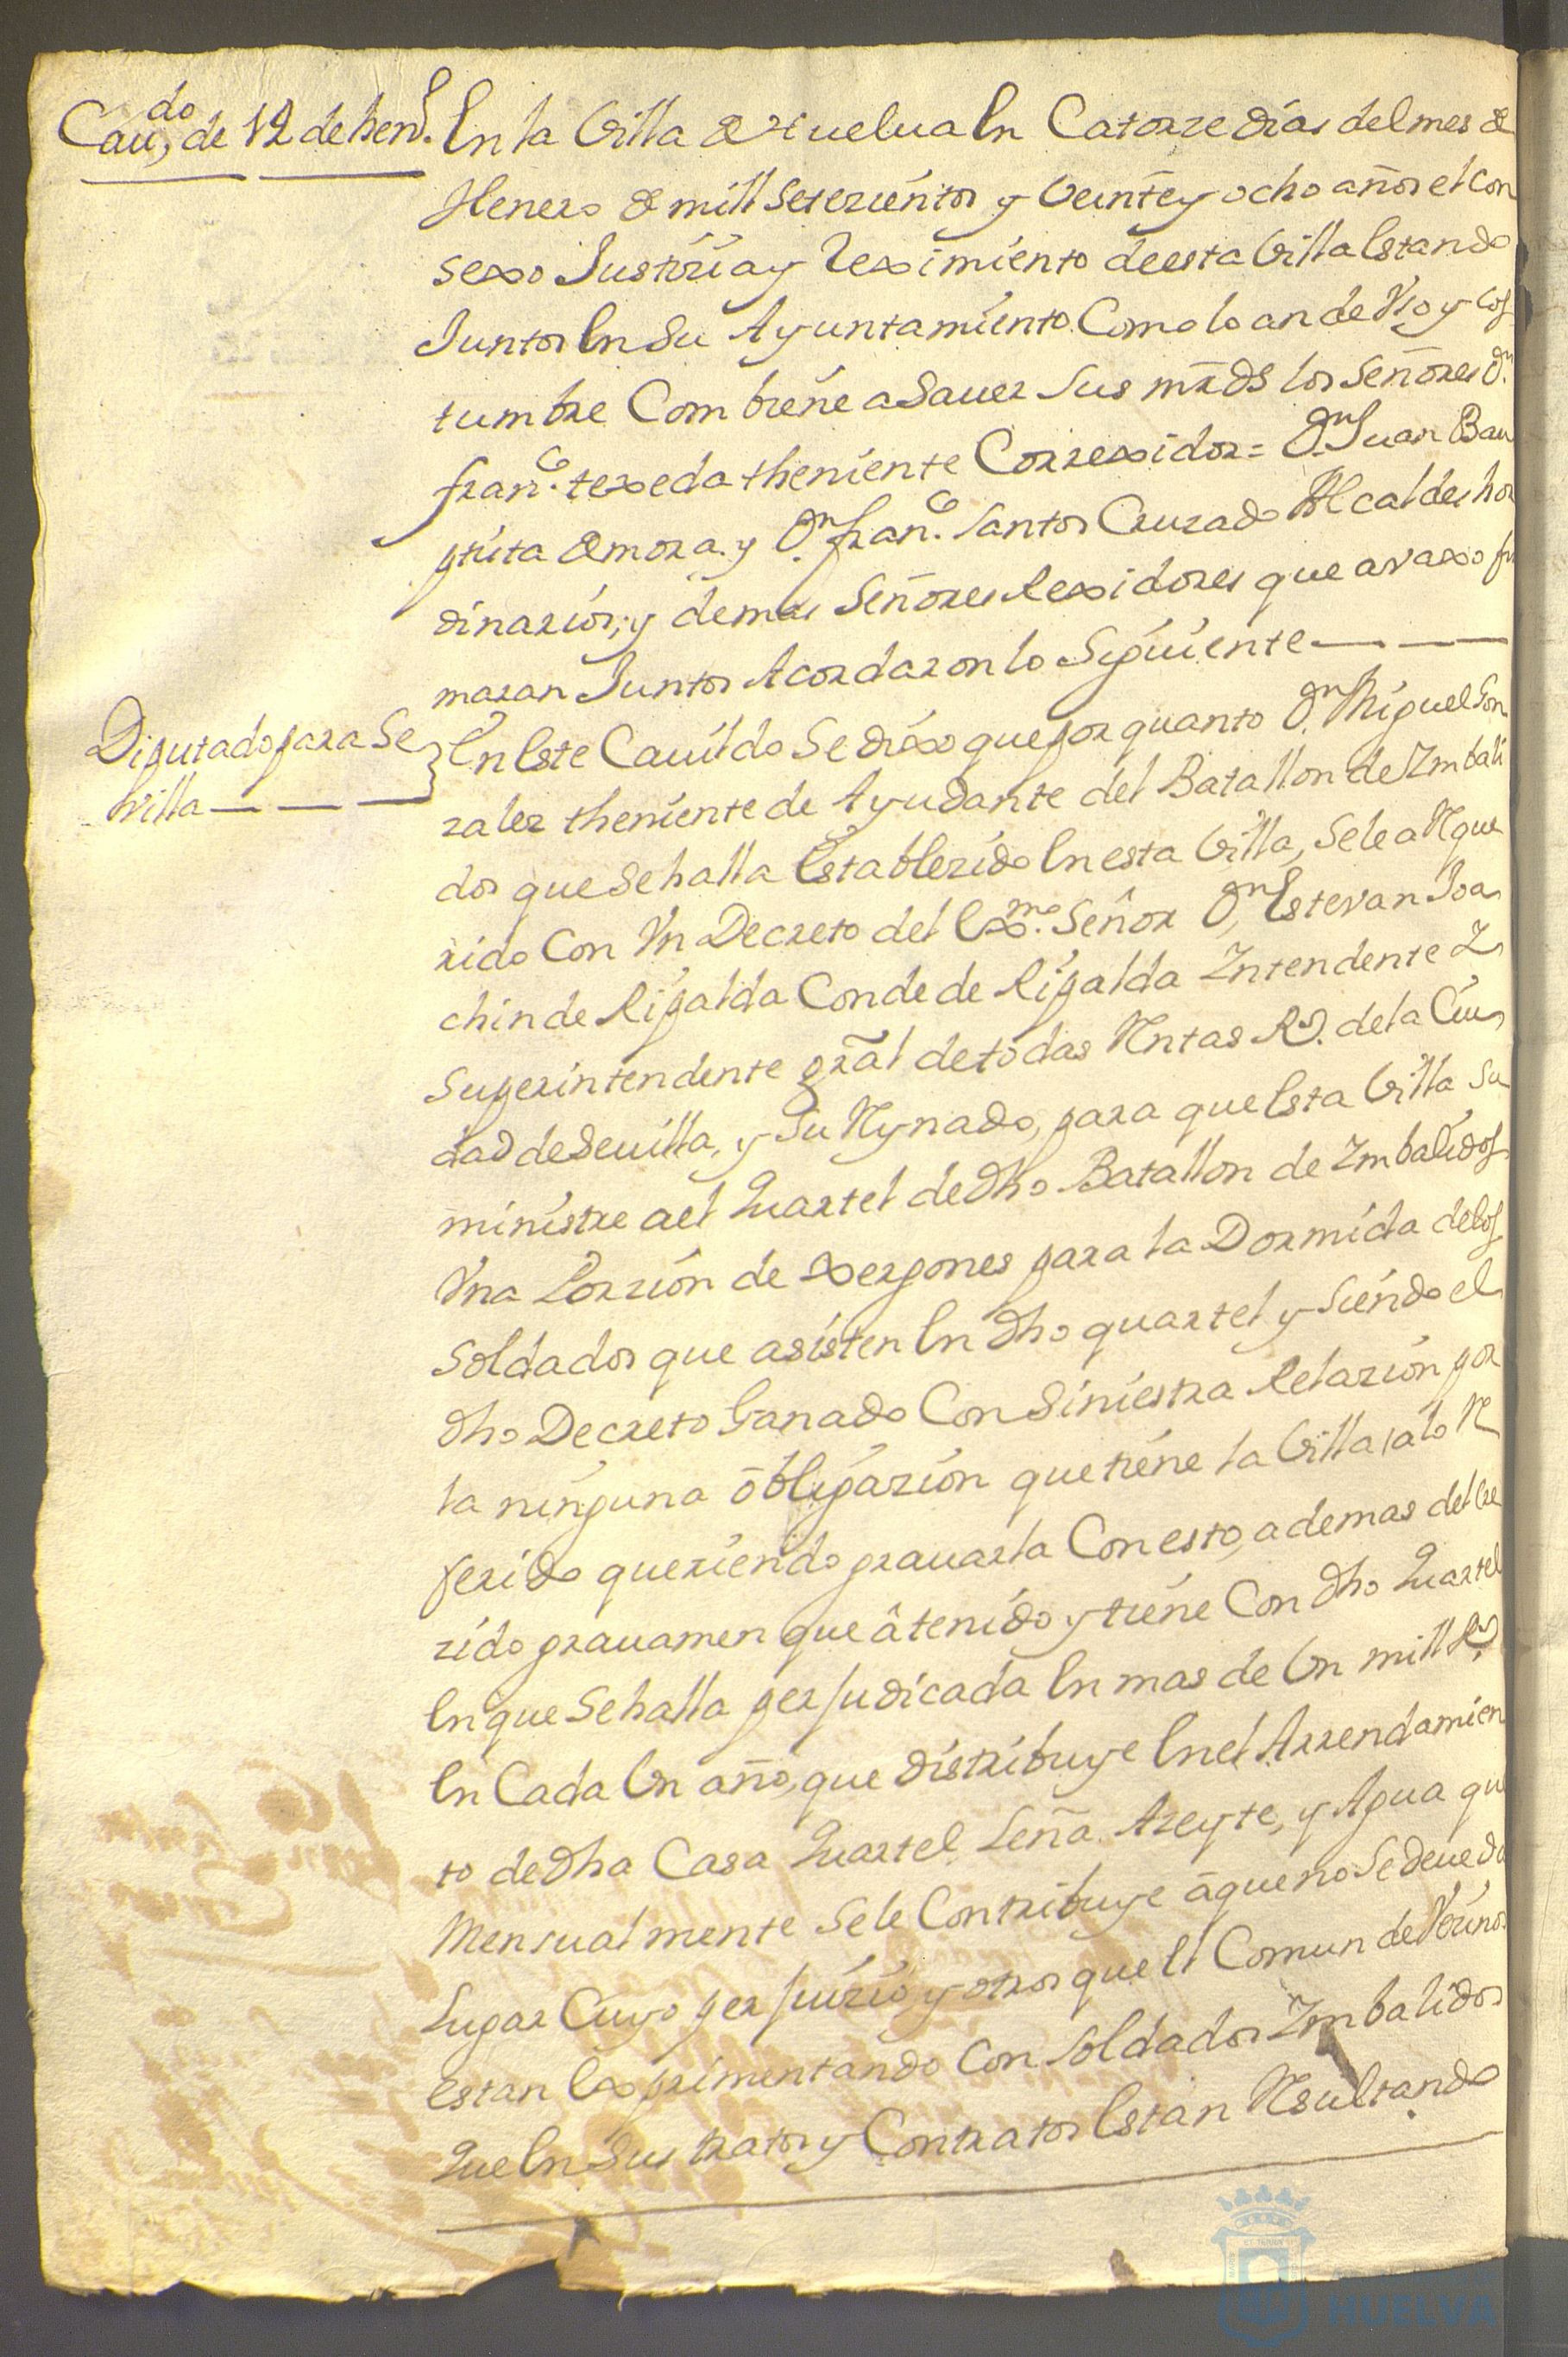 Cau,do de 12 de hen.o
En la Villa de Huelua En Catorze dias del mes de
Henero de mill Setezientos y Veinte y ocho años el con
sexo Justicia y Reximiento de esta Villa Estando
Juntos En Su Ayuntamiento Como lo an de Vso y cos
tumbre Combiene a Sauer Sus mrds los Señores Dn
fran.co texeda theniente Correxidor = Dn Juan Bau
ptista de mora y Dn fran.co Santos Cruzado Alcaldes hor
dinarios; y demas Señores Rexidores que avaxo fir
maran Juntos Acordaron lo Siguiente
Diputado para Se
villa
En Este Cauildo Se dixo que por quanto Dn Miguel Gon
zalez theniente de Ayudante del Batallon de Imbali
dos que Se halla Establezido En esta Villa, Se le a Reque
rido Con Vn Decreto del Exmo. Señor Dn Estevan Joa
chin de Ripalda Conde de Ripalda Intendente I
Superintendente gral de todas Rentas Rs. de la Ciu
dad de Seuilla, y Su Reynado, para que Esta Villa Su
ministre a el Quartel de dho Batallon de Imbalidos
Vna Porzion de xergones para la Dormida de los
Soldados que asisten En dho quartel y Siendo el
dho Decreto Ganado Con Siniestra Relazion por
la ninguna obligazion que tiene la Villa a lo Re
ferido queriendo grauarla Con esto, ademas del cre
zido grauamen que â tenido y tiene Con dho Quartel
En que Se halla perjudicada En mas de Vn mill Rs.
En Cada Vn año, que distribuye En el Arrendamien
to de dha Casa Quartel Leña. Azeyte, y Agua que
Mensualmente Se le Contribuye â que no Se deue da
Lugar Cuyo perjuizio y otros que El Comun de Vezinos
Estan Exprimentando Con Soldados Imbalidos
Que En Sus tratos y Contratos Estan Resultando
HUELVA